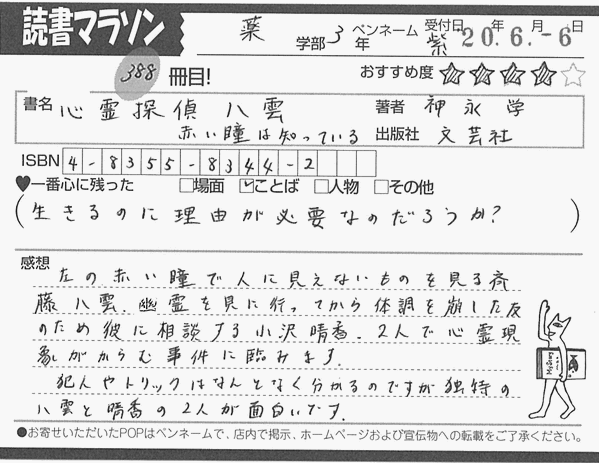 読書マラソン
薬 学部 3 年 ペンネーム 紫 受付日 '20.6.-6 年 月 日
388 冊目!
おすすめ度 ★★★★☆
書名 心霊探偵八雲 著者 神永学
赤い瞳は知っている 出版社 文芸社
ISBN 4-8355-8344-2
♥一番心に残った □場面 ☑ことば □人物 □その他
(生きるのに理由が必要なのだろうか?)
感想
左の赤い瞳で人に見えないものを見る斉
藤八雲。幽霊を見に行ってから体調を崩した友
のため彼に相談する小沢晴香。2人で心霊現
象がからむ事件に臨みます。
犯人やトリックはなんとなく分かるのですが独特の
八雲と晴香の2人が面白いです。
●お寄せいただいたPOPはペンネームで、店内で掲示、ホームページおよび宣伝物への転載をご了承ください。